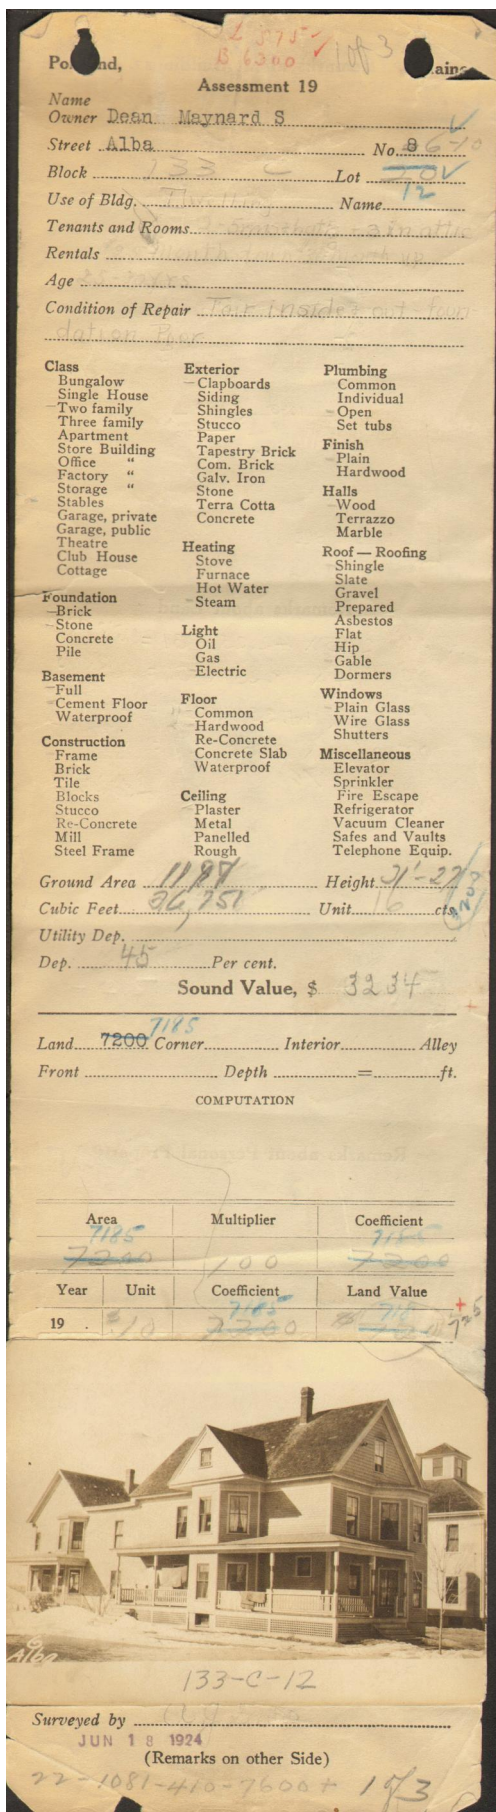 L 875
B 6300
1 of 3
Portland, Maine
Assessment 19
Name
Owner Dean Maynard S
Street Alba No. 8 6-10
Block 133 C Lot 12
Use of Bldg. Name
Tenants and Rooms in attic
Rentals
Age years
Condition of Repair Fair inside & out - foun-
dation Poor
Class
Bungalow
Single House
– Two family
Three family
Apartment
Store Building
Office "
Factory "
Storage "
Stables
Garage, private
Garage, public
Theatre
Club House
Cottage
Foundation
– Brick
– Stone
Concrete
Pile
Basement
– Full
– Cement Floor
Waterproof
Construction
– Frame
Brick
Tile
Blocks
Stucco
Re-Concrete
Mill
Steel Frame
Exterior
– Clapboards
Siding
Shingles
Stucco
Paper
Tapestry Brick
Com. Brick
Galv. Iron
Stone
Terra Cotta
Concrete
Heating
Stove
Furnace
Hot Water
– Steam
Light
Oil
Gas
– Electric
Floor
– Common
– Hardwood
Re-Concrete
Concrete Slab
Waterproof
Ceiling
– Plaster
Metal
Panelled
Rough
Plumbing
Common
Individual
– Open
Set tubs
Finish
– Plain
Hardwood
Halls
– Wood
Terrazzo
Marble
Roof — Roofing
– Shingle
Slate
Gravel
Prepared
Asbestos
Flat
Hip
– Gable
Dormers
Windows
– Plain Glass
Wire Glass
Shutters
Miscellaneous
Elevator
Sprinkler
Fire Escape
Refrigerator
Vacuum Cleaner
Safes and Vaults
Telephone Equip.
Ground Area 1187 Height 21'-27
Cubic Feet 36,751 Unit 16 cts.
3200
Utility Dep.
Dep. 45 Per cent.
Sound Value, $ 3234
7185
Land 7200 Corner Interior Alley
Front Depth = ft.
COMPUTATION
Area Multiplier Coefficient
7185 7185
7200 100 7200
Year Unit Coefficient Land Value
7185 718
19 . $10 7200 $720 725
Alba
133-C-12
Surveyed by
JUN 18 1924
(Remarks on other Side)
22-1081-410-7600+ 1 of 3